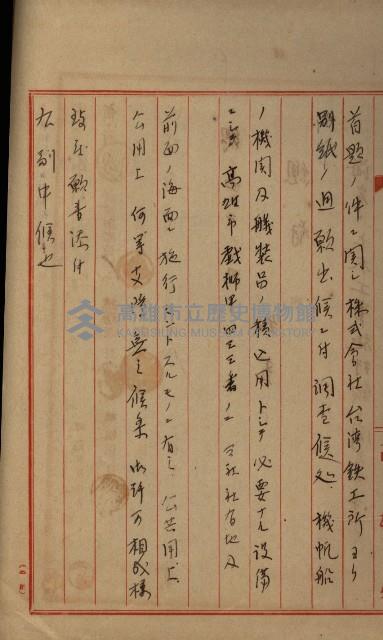 首題ノ件ニ関シ株式會社台湾鉄工所ヨリ
別紙ノ通願出候ニ付調査候処機帆船
ノ機関及艤装品ノ積込用トシテ必要ナル設備
ニシテ高雄市戯獅甲四三三番ノ 会社社有地及
前面ノ海面ニ施行セントスルモノニ有之公共用上
公用上何等支障無之候条御許可相成様
致度願書添付
右副申候也
高雄市立歷史博物館
KAOHSIUNG MUSEUM OF HISTORY